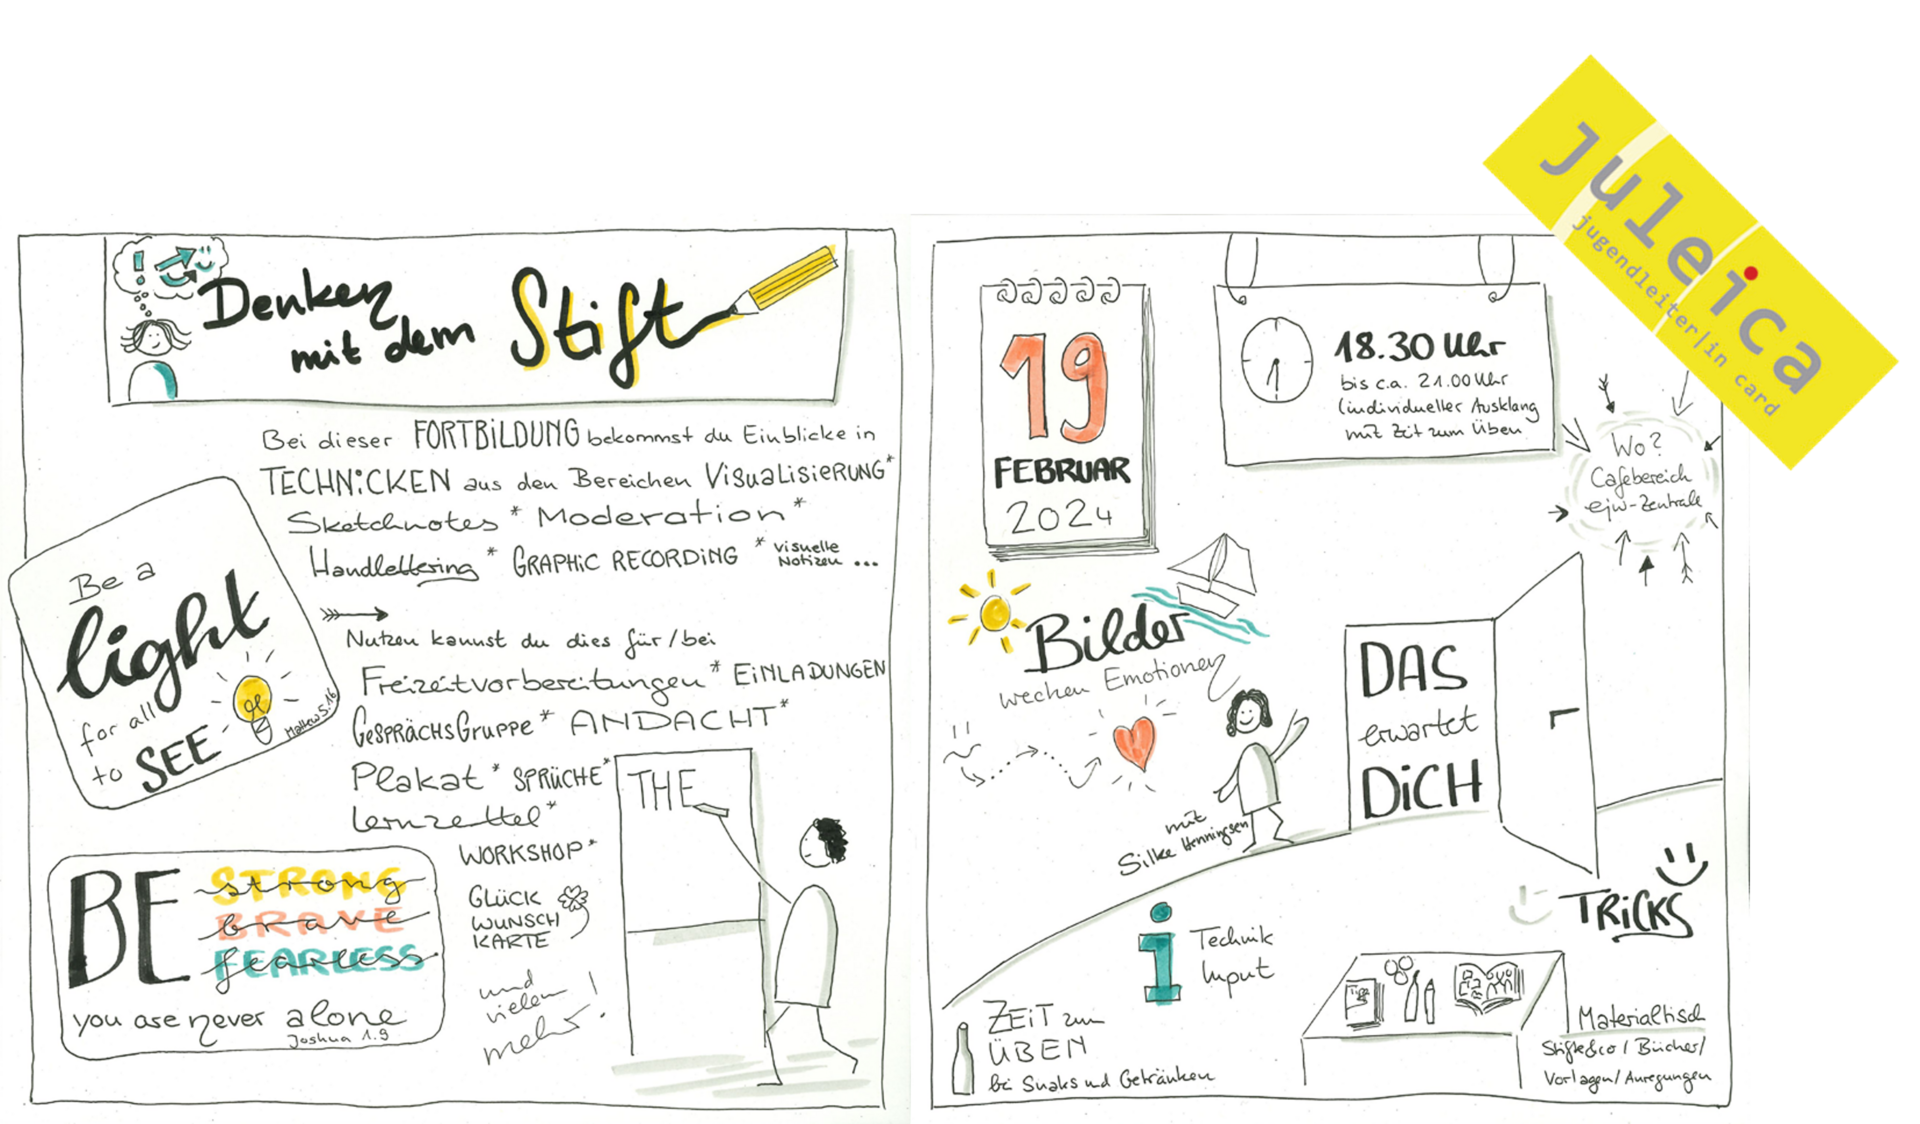 Denken
mit dem Stift
Bei dieser FORTBILDUNG bekommst du Einblicke in
TECHNiCKEN aus den Bereichen VisuaLisieRUNG*
Sketchnotes * Moderation *
Handlettering * GRAPHiC RECORDiNG * visuelle
Notizen ...
Nutzen kannst du dies für/bei
Freizeitvorbereitungen * EiNLADUNGEN
GESPRÄCHSGRUPPE * ANDACHT *
Plakat * SPRÜCHE *
Lernzettel *
WORKSHOP *
GLÜCK
WUNSCH
KARTE
und
vielem
mehr!
Be a
light
for all
to SEE
Mattew 5.16
BE STRONG
BRAVE
FEARLESS
you are never alone
Joshua 1.9
THE
19
FEBRUAR
2024
18.30 Uhr
bis c.a. 21.00 Uhr
(individueller Ausklang
mit Zeit zum Üben
Juleica
jugendleiter|in card
Wo?
Cafebereich
ejw-Zentrale
Bilder
wecken Emotionen
mit
Silke Henningsen
DAS
erwartet
DiCH
TRiCKS
i Technik
Input
ZEiT zum
ÜBEN
bei Snaks und Getränken
Materialtisch
Stifte&co / Bücher/
Vorlagen/ Anregungen